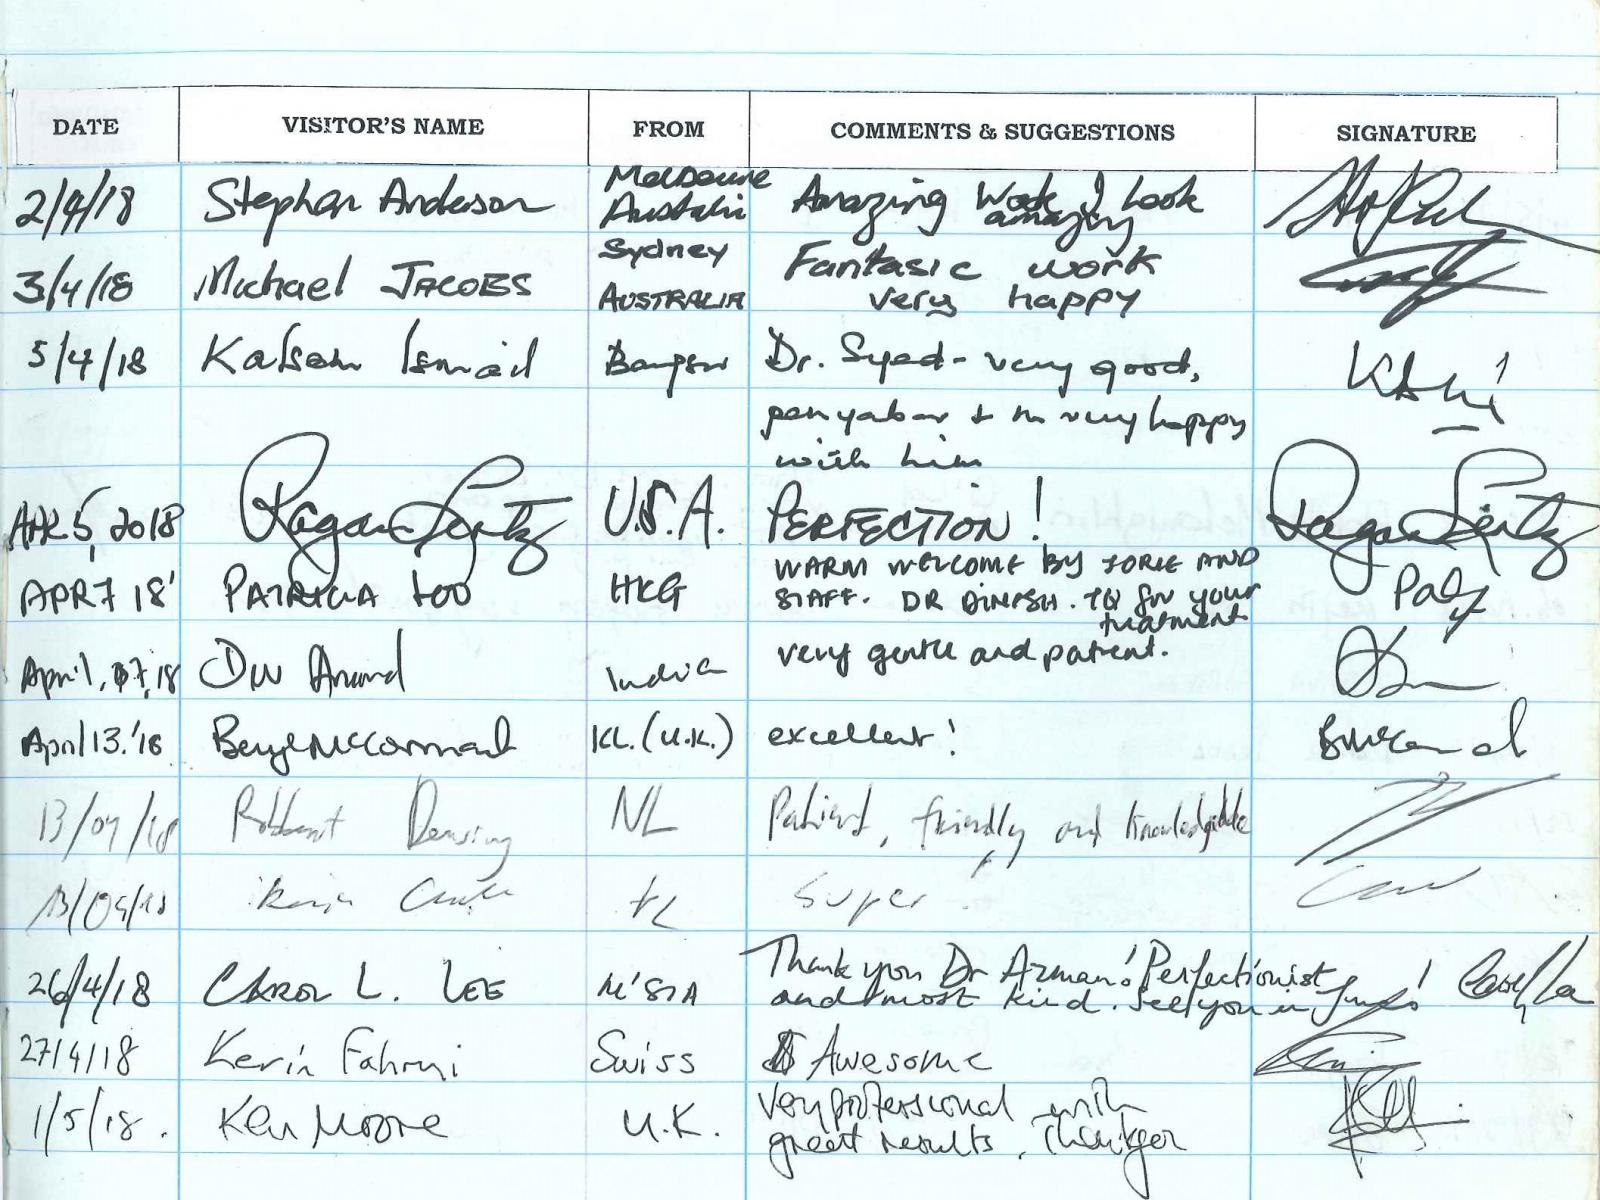 DATE VISITOR'S NAME FROM COMMENTS & SUGGESTIONS SIGNATURE
Melbourne
2/4/18 Stephan Anderson Australia Amazing Work I Look
amazing
Sydney
3/4/18 Michael JACOBS AUSTRALIA Fantasic work
very happy
5/4/18 Kalsom Ismail Bangsar Dr. Syed - very good,
penyabar + m very happy
with him
APR 5, 2018 Ragan U.S.A. PERFECTION!
WARM WELCOME BY AND
APR 7 18' PATRICIA LOO HKG STAFF. DR DINESH. TQ for your
treatment
very gentle and patient.
April, 07, 18 Anand India
April 13.'18 Beryl McCormack KL. (U.K.) excellent!
13/04/18 NL Patient, friendly and knowledgable
13/04/18 super!
26/4/18 CAROL L. LEE M'SIA Thank you Dr Azman! Perfectionist
and most kind. See you in June!
27/4/18 Kevin Fahrni Swiss Awesome
1/5/18. Ken Moore U.K. Very professional with
great results.